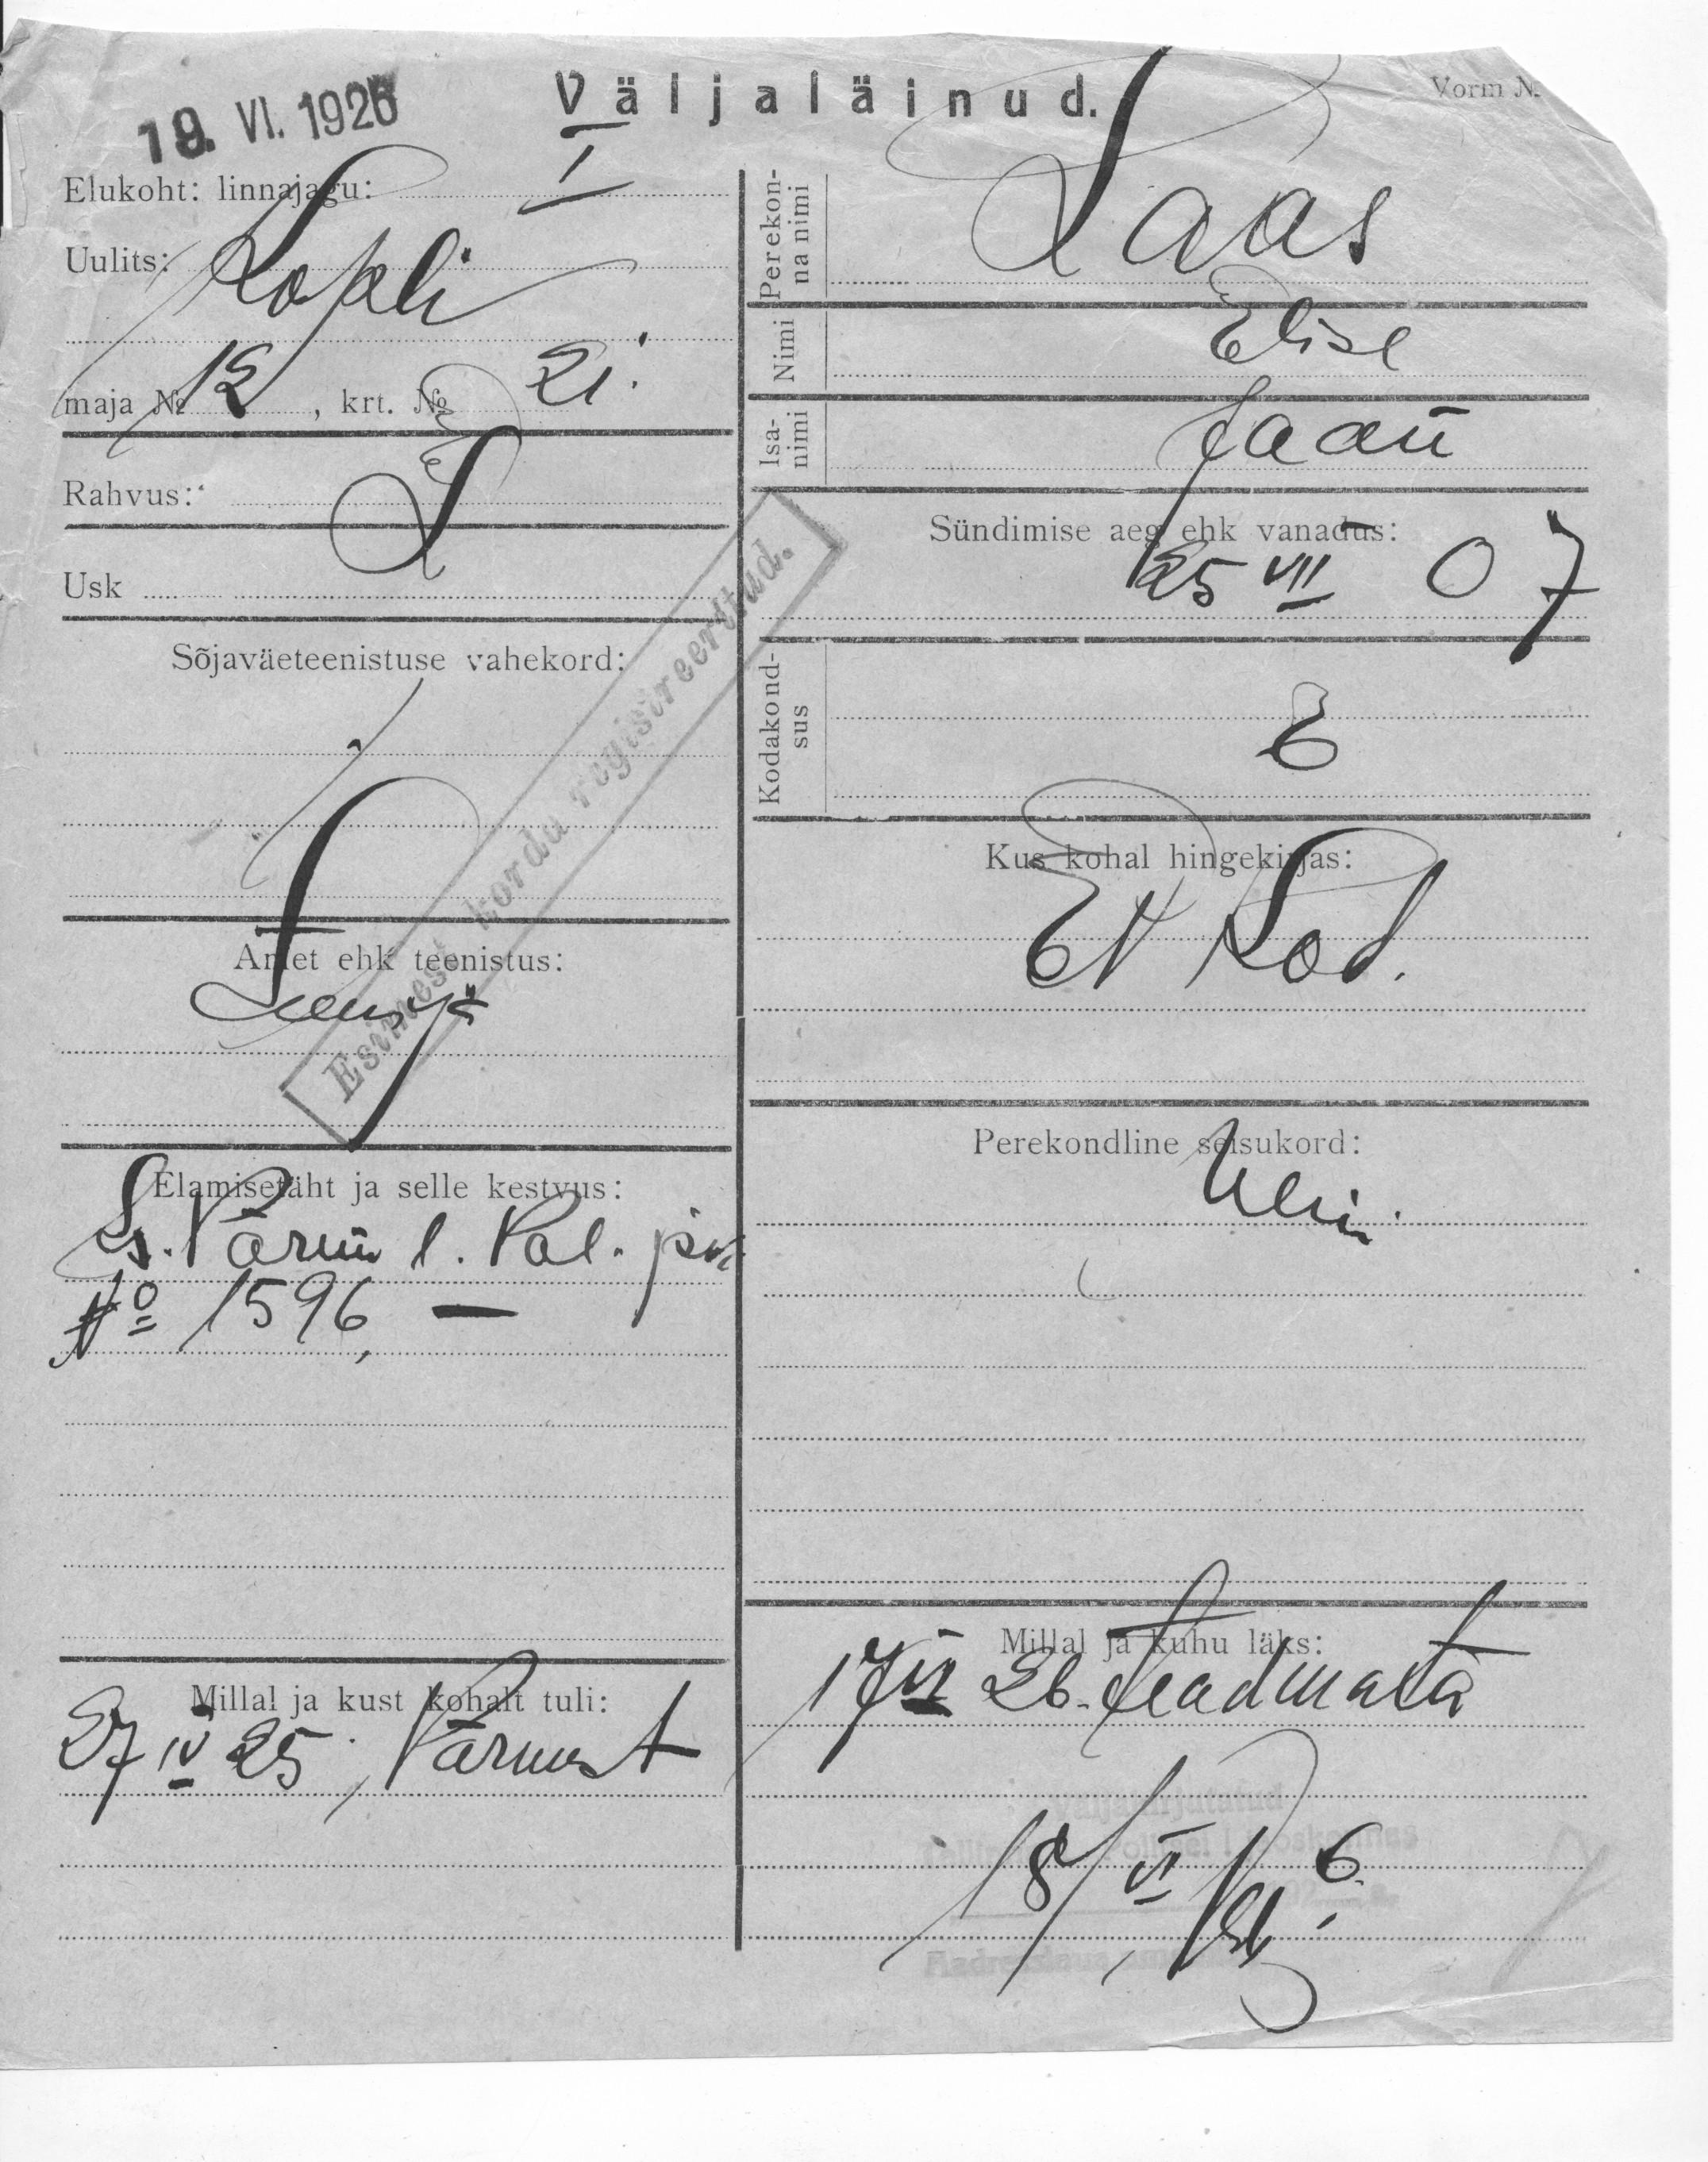 19. VI. 1926
Väljaläinud.
Vorm №
Elukoht: linnajagu: I
Uulits: Kopli
maja № 12, krt. № 21.
Rahvus: E
Usk L
Sõjaväeteenistuse vahekord:
Amet ehk teenistus:
Teenija
Esimest korda registreeritud.
Elamisetäht ja selle kestvus:
Is. Pärnu l. Pol. jsk.
№ 1596, —
Millal ja kust kohalt tuli:
27 IV 25, Pärnust
Perekonna nimi Laas
Nimi Elise
Isanimi Jaan
Sündimise aeg ehk vanadus:
25 VII 07
Kodakondsus E
Kus kohal hingekirjas:
EV Kod.
Perekondline seisukord:
Millal ja kuhu läks:
17 VI 26. teadmata
Väljakirjutatud
18/VI 6.